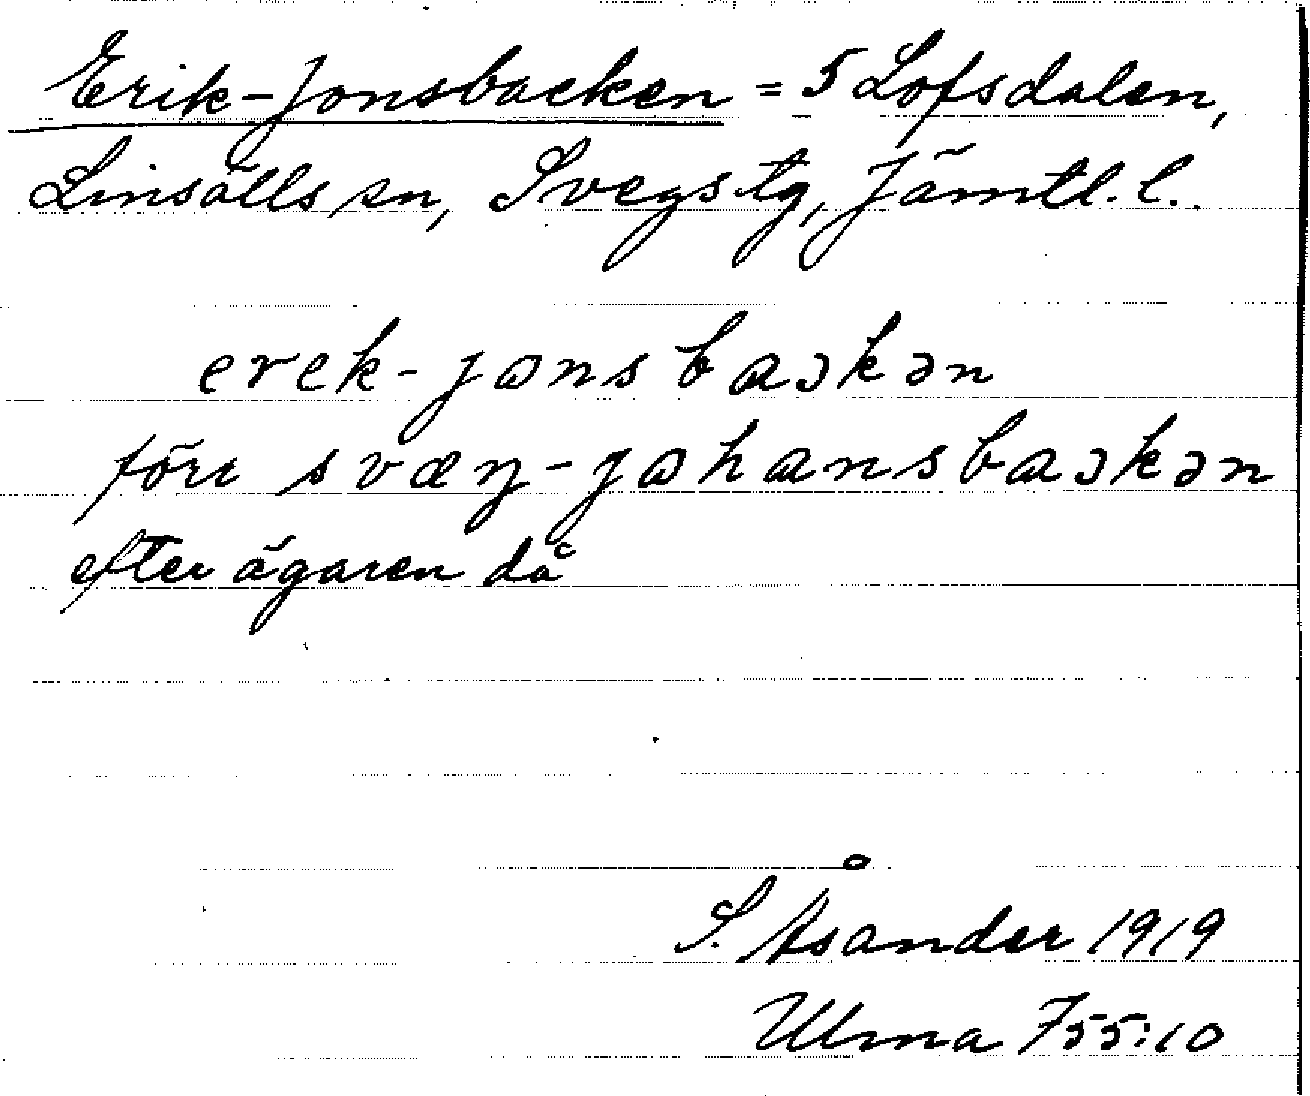 Erik-Jonsbacken = 5 Lofsdalen,
Linsälls sn, Svegs tg, Jämtl. l.
erek-jɷnsbaɔkən
förr svæŋ-jɷhansbaɔkən
efter ägaren då
S. Åsander 1919
Ulma 755:10